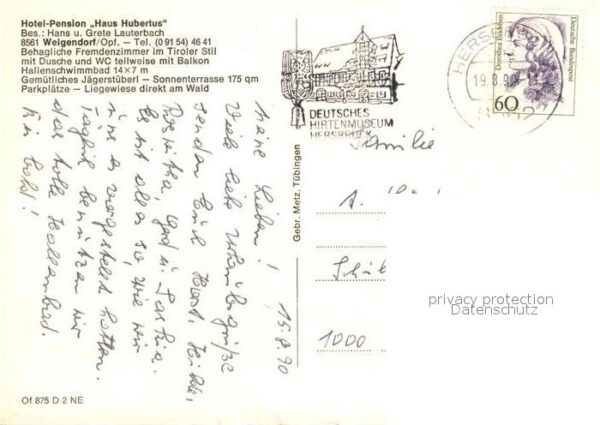 Hotel-Pension „Haus Hubertus"
Bes.: Hans u. Grete Lauterbach
8561 Weigendorf/Opf. – Tel. (0 91 54) 46 41
Behagliche Fremdenzimmer im Tiroler Stil
mit Dusche und WC teilweise mit Balkon
Hallenschwimmbad 14×7 m
Gemütliches Jägerstüberl – Sonnenterrasse 175 qm
Parkplätze – Liegewiese direkt am Wald
15.8.90
Meine Lieben!
Viele liebe Urlaubsgrüße
senden Euch Horst, Heidi,
Gerd u. Saskia.
Es ist alles so, wie wir
uns es vorgestellt hatten.
Täglich benutzen wir
das tolle Hallenbad.
Of 875 D 2 NE
Gebr. Metz, Tübingen
DEUTSCHES
HIRTENMUSEUM
HERSBRUCK
HERSB
19.8.90
Dorothea Erxleben
Deutsche Bundespost
60
Familie
A.
1000
privacy protection
Datenschutz